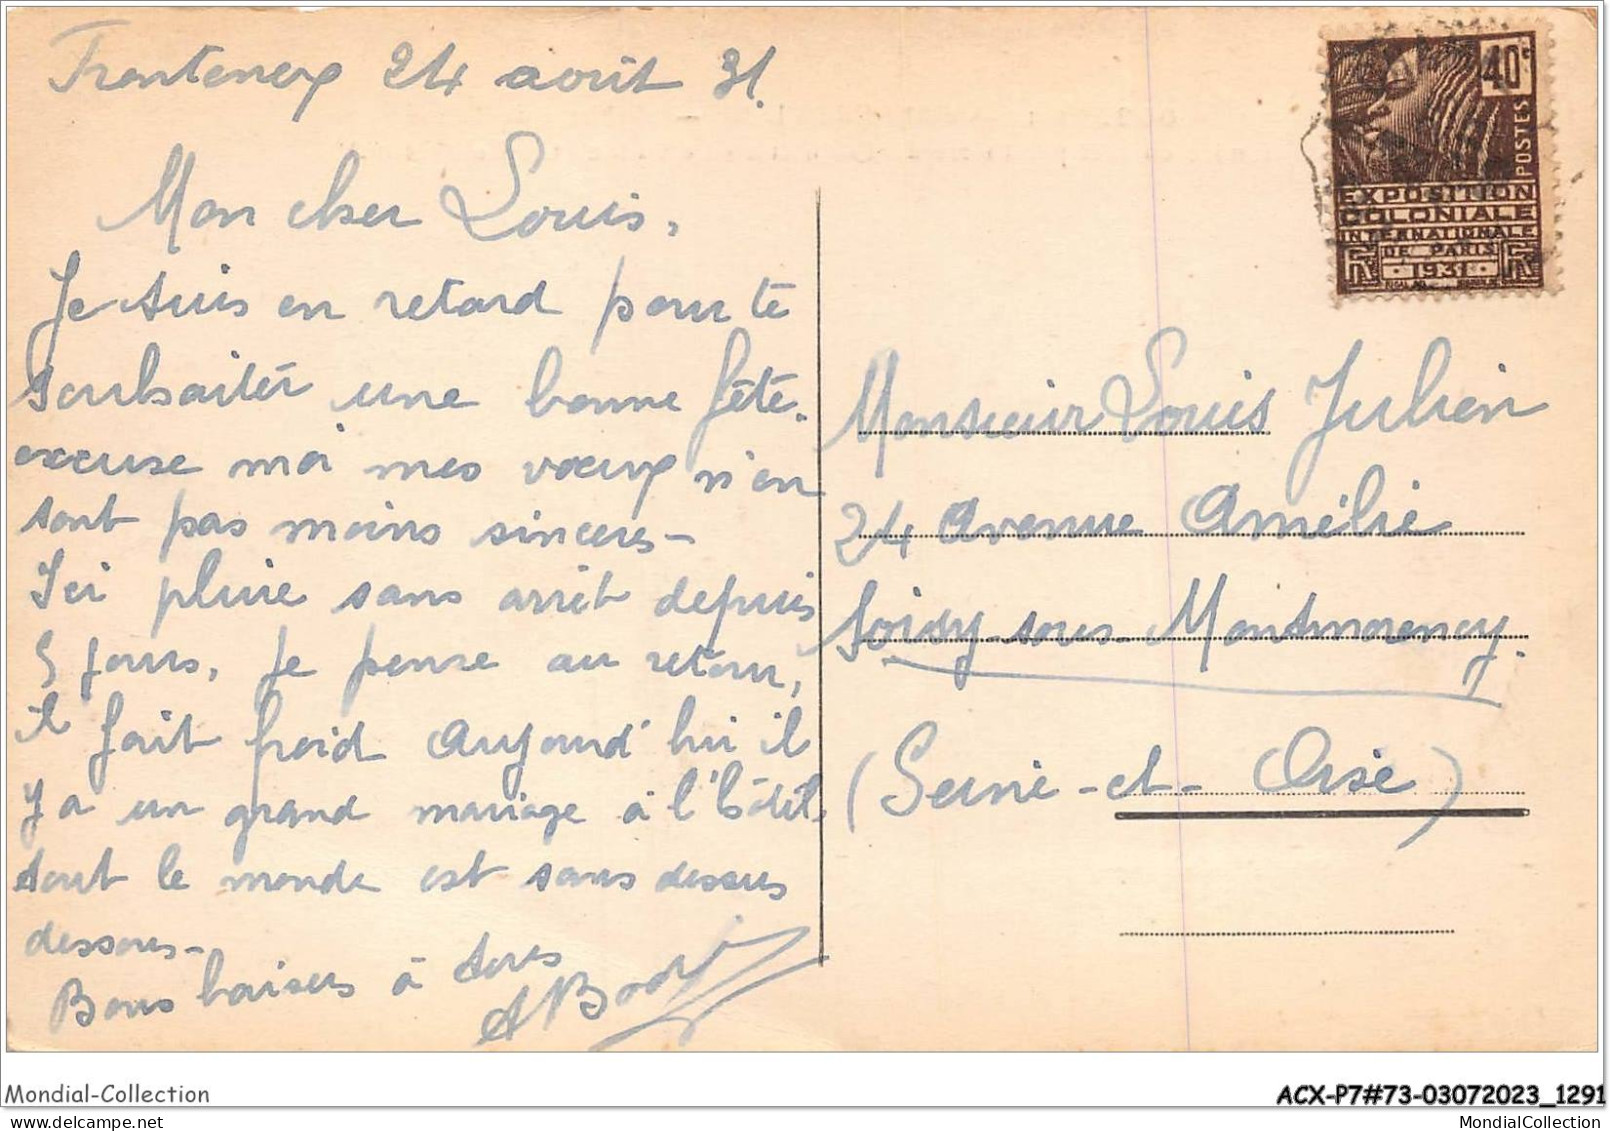 Frontenex 24 août 31.
Mon cher Louis,
Je suis en retard pour te
souhaiter une bonne fête.
excuse moi mes vœux n'en
sont pas moins sincères -
Ici pluie sans arrêt depuis
5 jours, je pense au retour,
il fait froid aujourd'hui il
y a un grand mariage à l'hôtel,
tout le monde est sans dessus
dessous -
Bons baisers à tous
A
40c
POSTES
EXPOSITION
COLONIALE
INTERNATIONALE
DE PARIS
1931
Monsieur Louis Julien
24 Avenue Amélie
Soisy-sous-Montmorency.
(Seine-et-Oise)
Mondial-Collection
ACX-P7#73-03072023_1291
MondialCollection